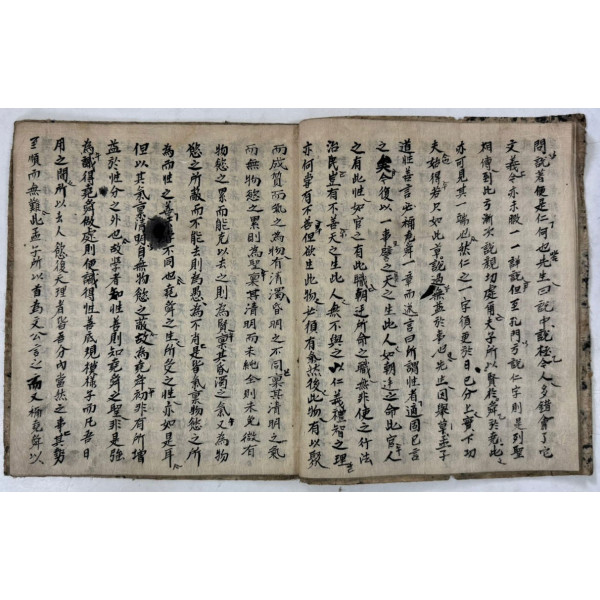 問說著便是仁何也先生曰說中說極今人多錯會了它
文義今亦未暇一一詳說但至孔門方說仁字則是列聖
相傳到此方漸次說親切處爾夫子所以賢於堯舜於此
亦可見其一端也然仁之一字須更於自己分上實下功
夫始得若只如此草說過無益於事也先生因舉孟子
道性善言必稱堯舜一章而遂言曰所謂性者適固已言
之矣今復以一事譬之天之生此人如朝廷之命此官人
之有此性如官之有此職朝廷所命之職無非使之行法
治民豈有不善天之生此人無不與之以仁義禮智之理
亦何嘗有不善但欲生此物必須有氣然後此物有以聚
而成質而氣之為物有清濁昏明之不同稟其清明之氣
而無物慾之累則為聖稟其清明而未純全則未免微有
物慾之累而能克以去之則為賢稟其昏濁之氣又為物
慾之所蔽而不能去則為愚為不肖是皆氣稟物慾之所
為而性之善不同也堯舜之生所受之性亦如是耳
但以其氣稟清明自無物慾之蔽故為堯舜初非有所增
益於性分之外也故學者知性善則知堯舜之聖非是強
為識得堯舜做處則便識得性善底規模樣子而凡吾日
用之間所以去人慾復天理者皆吾分內當然之事其勢
至順而無難此孟子所以首為文公言之而又稱堯舜以